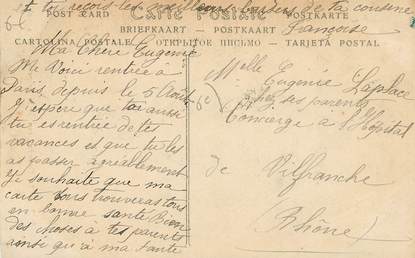 et toi reçois les meilleurs baisers de ta cousine
Françoise
POST CARD Carte Postale POSTKARTE
BRIEFKAART — POSTKAART
CARTOLINA POSTALE ОТКРЫТОЕ ПИСЬМО — TARJETA POSTAL
Ma Chère Eugénie
Me voici rentrée à
Paris, depuis le 5 Août
J'espère que toi aussi
tu es rentrée de tes
vacances es que tu les
as passer agréablement
Je souhaite que ma
carte vous trouveras tous
en bonne santé Bien
des choses à tes parents
ainsi qu'à ma tante
Melle Eugénie Laplace
chez ses parents
Concierge à l'Hopital
de Vilfranche
(Rhône)